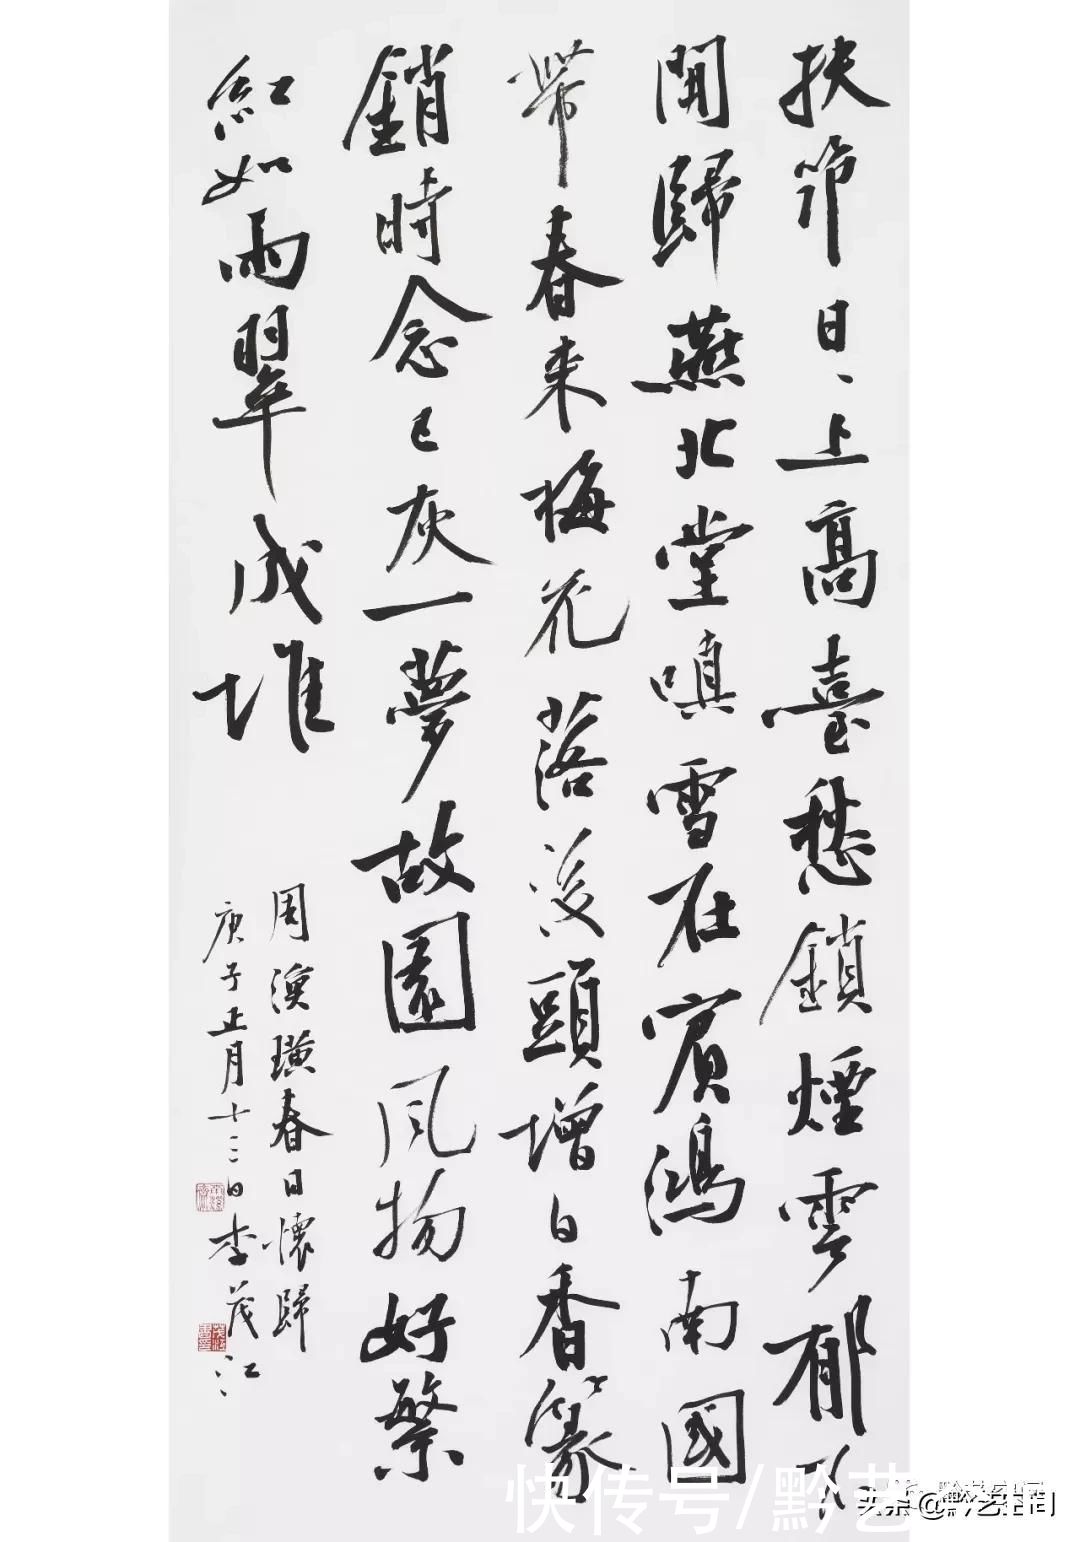 扶筇日、上高臺愁鎖煙雲郁不
開歸燕北堂嗔雪在賓鴻南國
帶春来梅花落後頭增白香篆
銷時念已灰一夢故園風物好繁
紅如雨翠成堆
周漁璜春日懷歸
庚子正月十二日李茂江
快传号/黔艺
头条 @黔艺